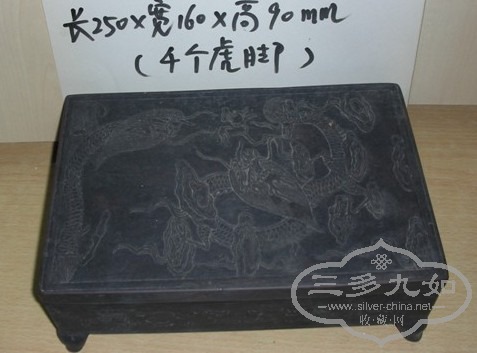 长250×宽160×高90mm
(4个虎脚)
三多九如
www.silver-china.net
收藏网